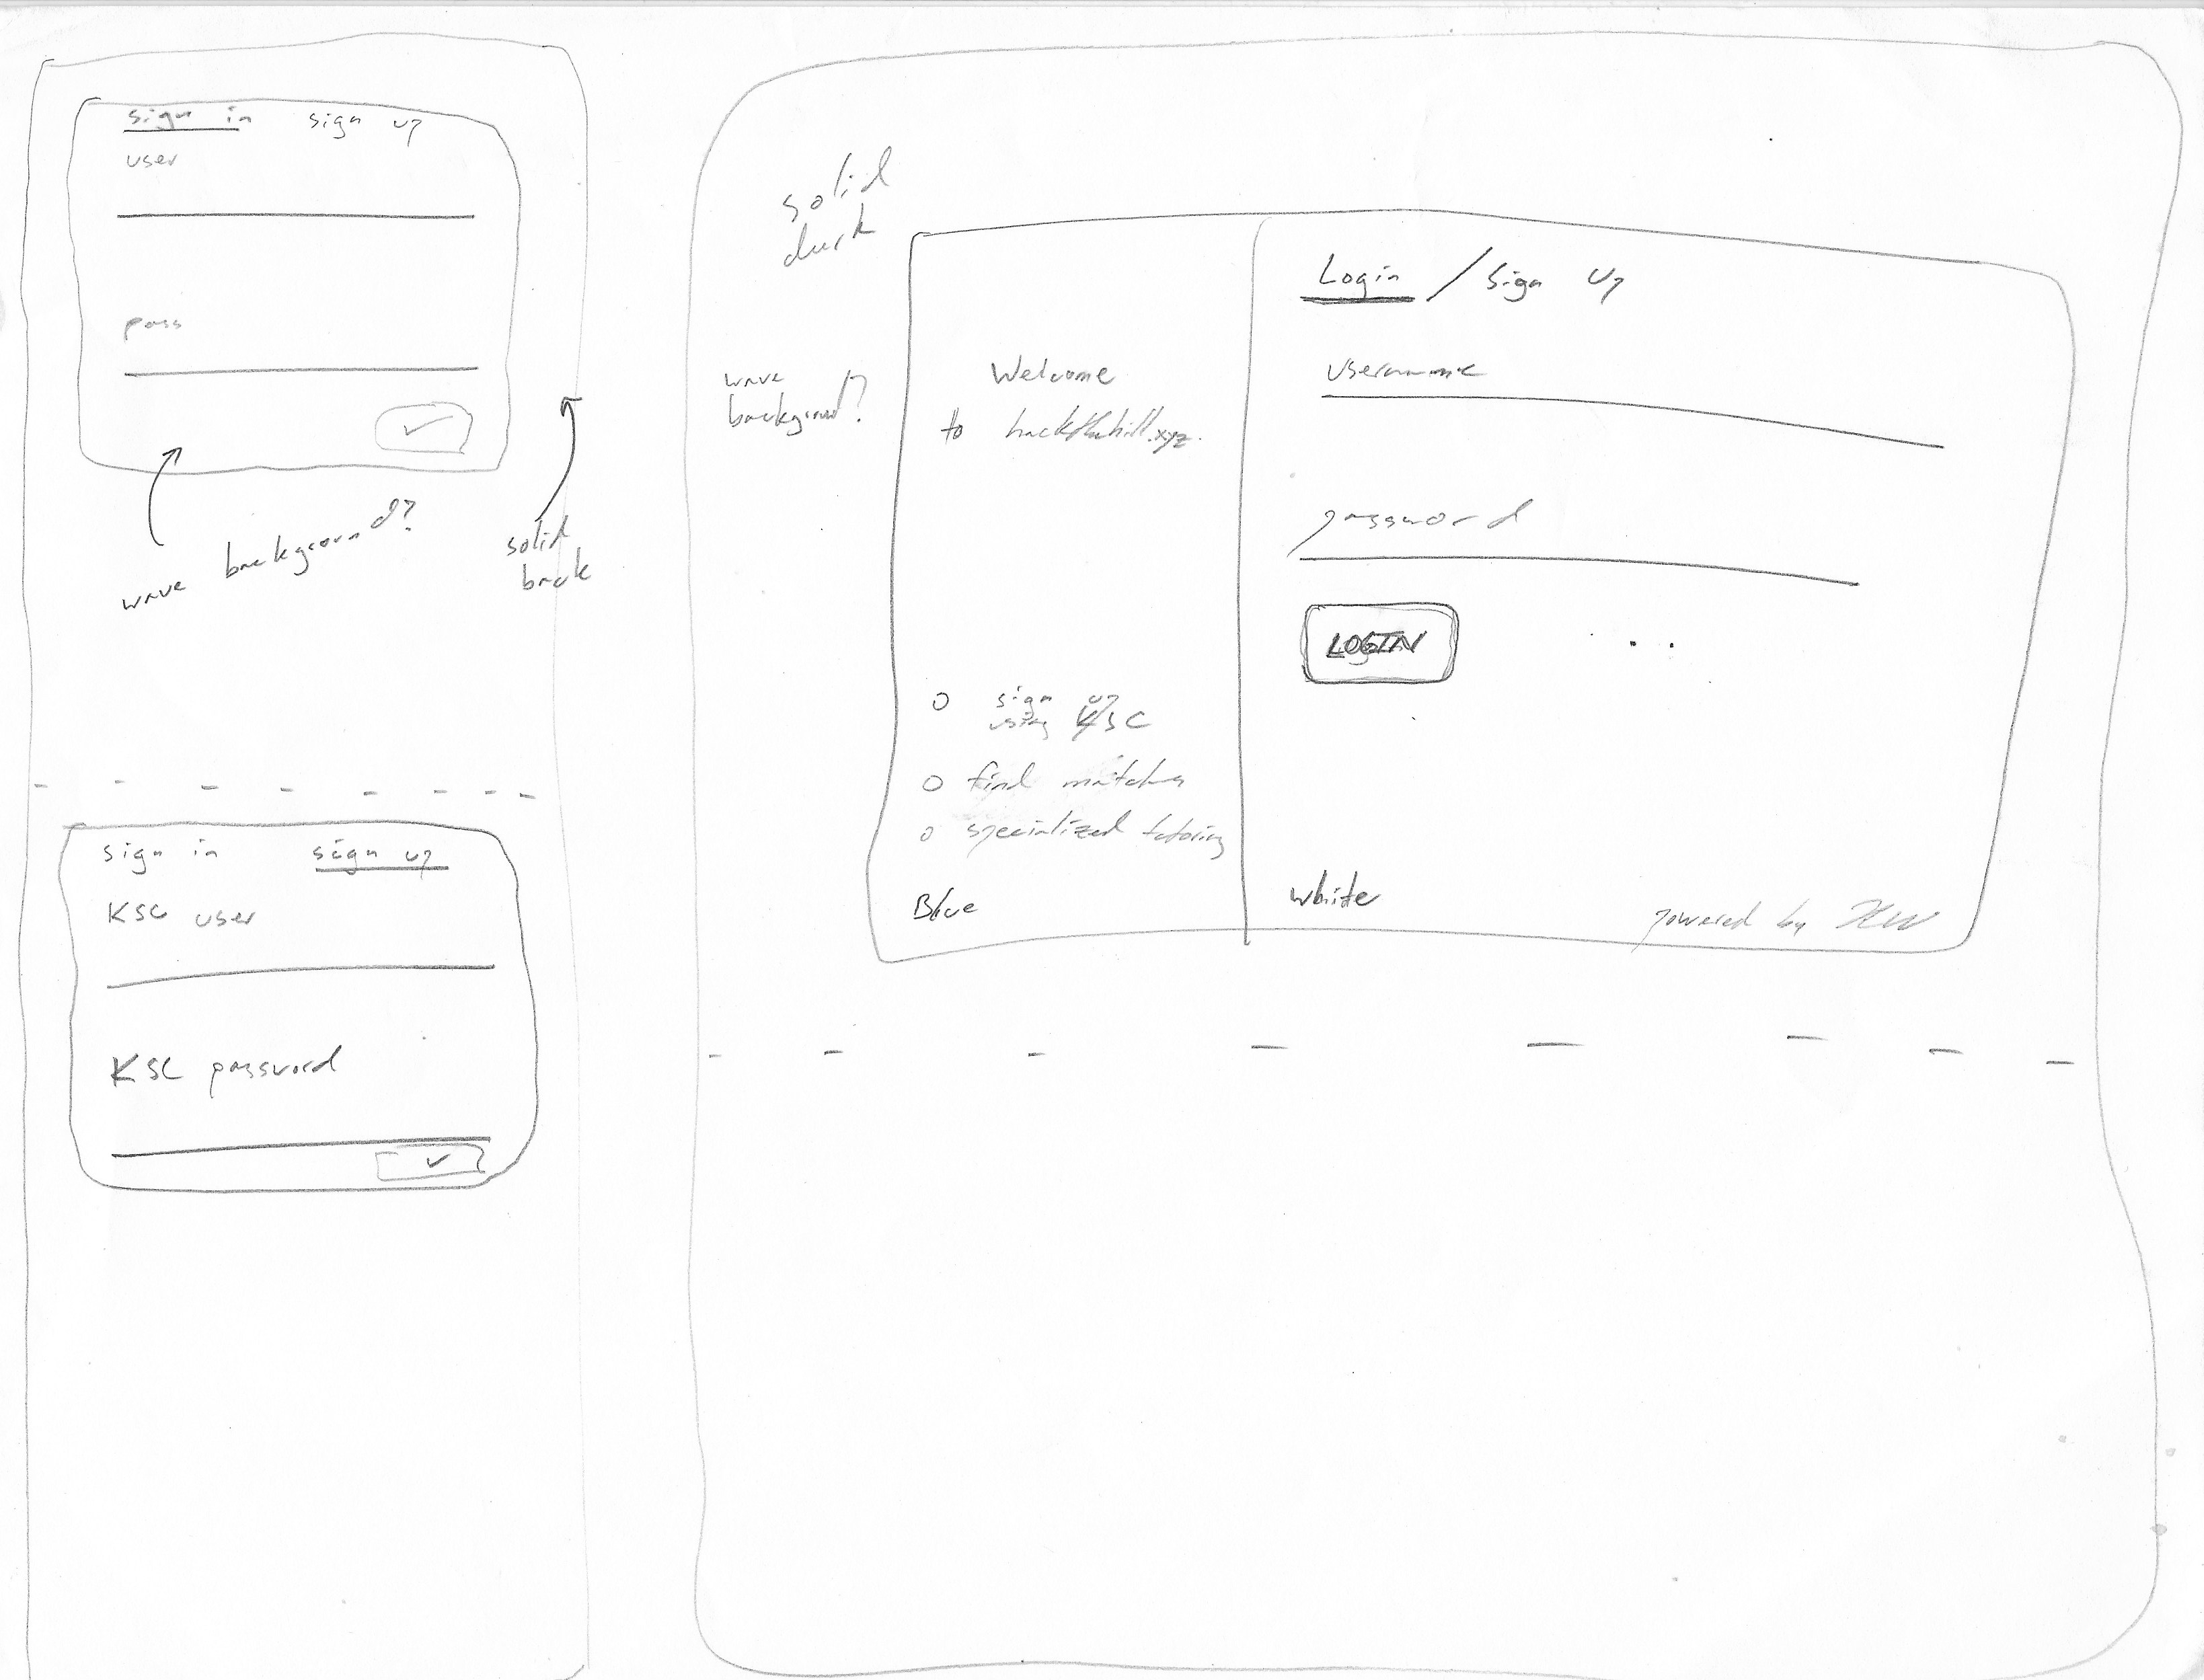 sign in sign up
user
pass
✓
wave background?
solid
back
sign in sign up
KSC user
KSC password
✓
solid
dark
wave
background?
Welcome
to hackthehill.xyz
o sign up
using KSC
o find matches
o specialized tutoring
Blue
Login / Sign Up
username
password
LOGIN
white
powered by